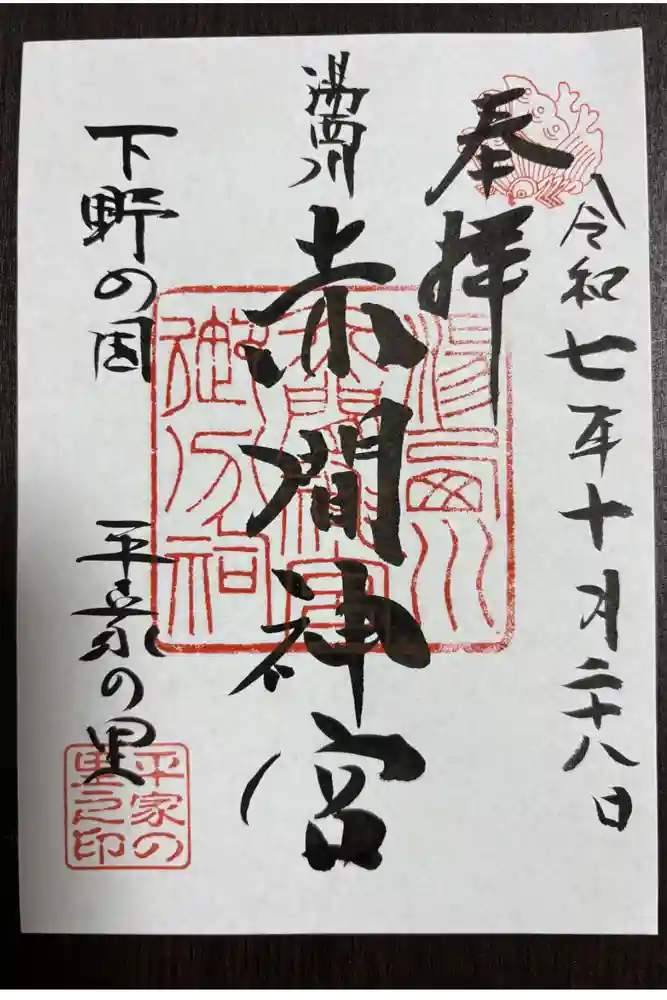 奉拝
令和七年十月二十八日
湯西川
赤間神宮
下野の国
平家の里
湯西川
赤間神宮
御分祠
平家の
里之印